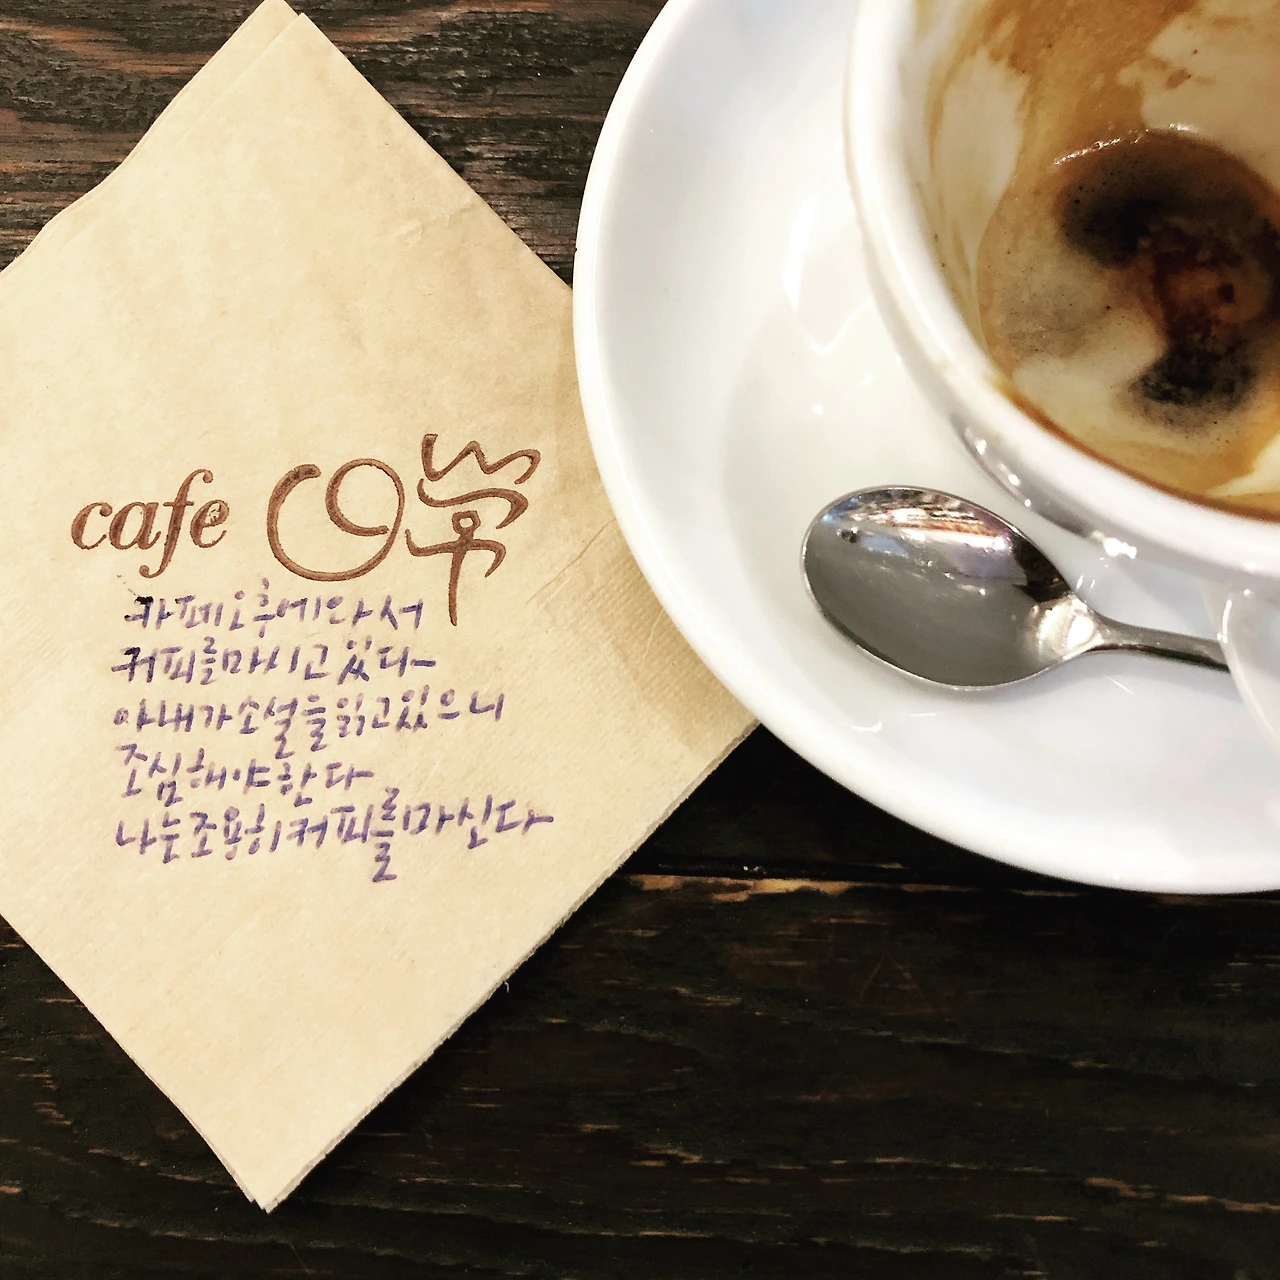 cafe
카페오후에와서
커피를마시고있다
아내가소설을읽고있으니
조심해야한다
나는조용히커피를마신다